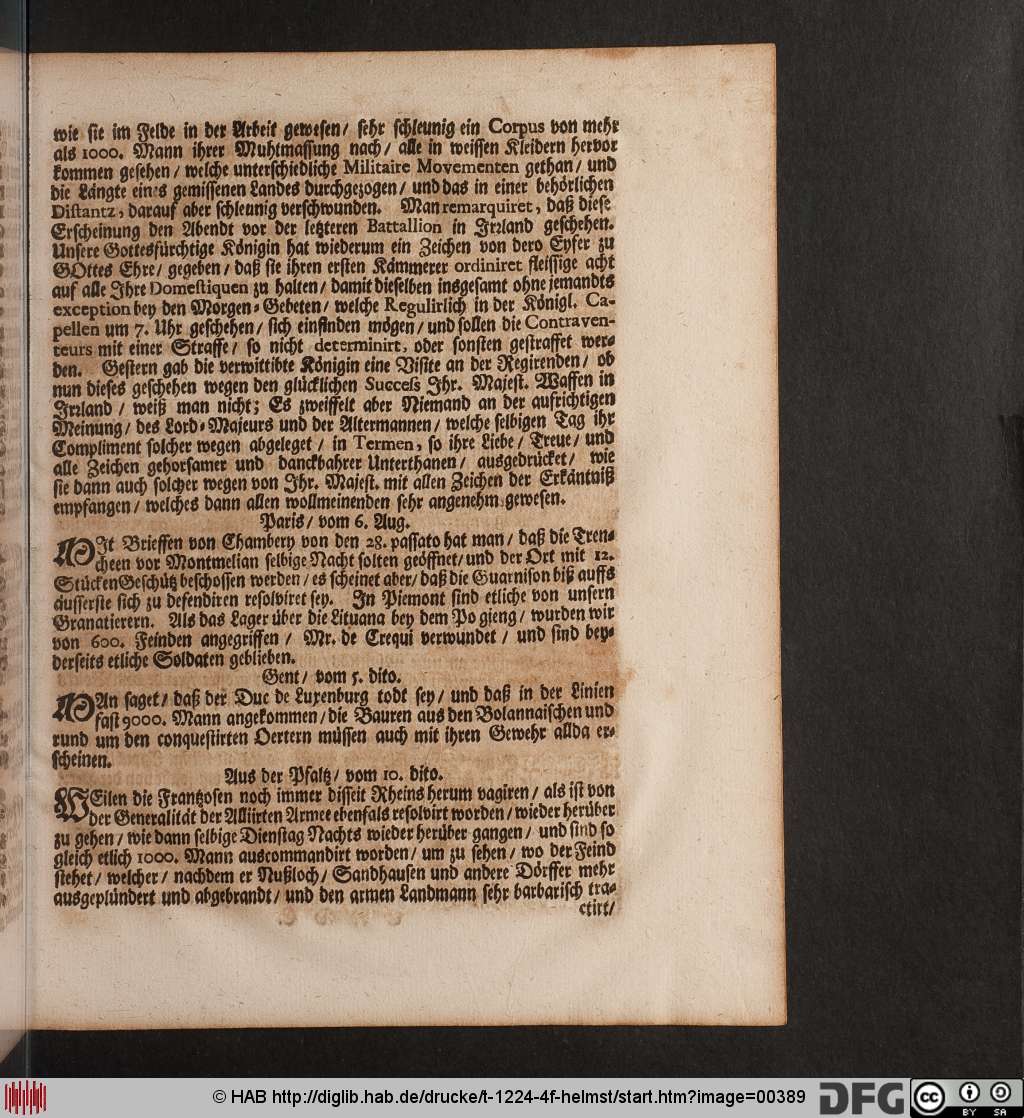 wie sie im Felde in der Arbeit gewesen/ sehr schleunig ein Corpus von mehr
als 1000. Mann ihrer Muhtmassung nach/ alle in weissen Kleidern hervor
kommen gesehen/ welche unterschiedliche Militaire Movementen gethan/ und
die Längte eines gemissenen Landes durchgezogen/ und das in einer behörlichen
Distantz, darauf aber schleunig verschwunden. Man remarquiret, daß diese
Erscheinung den Abendt vor der letzteren Battallion in Irrland geschehen.
Unsere Gottesfürchtige Königin hat wiederum ein Zeichen von dero Eyfer zu
GOttes Ehre/ gegeben/ daß sie ihren ersten Kämmerer ordiniret fleissige acht
auf alle Ihre Domestiquen zu halten/ damit dieselben insgesamt ohne jemandts
exception bey den Morgen-Gebeten/ welche Regulirlich in der Königl. Ca-
pellen um 7. Uhr geschehen/ sich einfinden mögen/ und sollen die Contraven-
teurs mit einer Straffe/ so nicht determinirt, oder sonsten gestraffet wer-
den. Gestern gab die verwittibte Königin eine Visite an der Regirenden/ ob
nun dieses geschehen wegen den glücklichen Success Ihr. Majest. Waffen in
Irrland/ weiß man nicht; Es zweiffelt aber Niemand an der aufrichtigen
Meinung/ des Lord-Majeurs und der Altermannen/ welche selbigen Tag ihr
Compliment solcher wegen abgeleget/ in Termen, so ihre Liebe/ Treue/ und
alle Zeichen gehorsamer und danckbahrer Unterthanen/ ausgedrücket/ wie
sie dann auch solcher wegen von Ihr. Majest. mit allen Zeichen der Erkäntniß
empfangen/ welches dann allen wollmeinenden sehr angenehm gewesen.
Paris/ vom 6. Aug.
MIt Brieffen von Chambery von den 28. passato hat man/ daß die Tren-
cheen vor Montmelian selbige Nacht solten geöffnet/ und der Ort mit 12.
Stücken Geschütz beschossen werden/ es scheinet aber/ daß die Guarnison biß auffs
äusserste sich zu defendiren resolviret sey. In Piemont sind etliche von unsern
Granatierern. Als das Lager über die Lituana bey dem Po gieng/ wurden wir
von 600. Feinden angegriffen/ Mr. de Crequi verwundet/ und sind bey-
derseits etliche Soldaten geblieben.
Gent/ vom 5. dito.
MAn saget/ daß der Duc de Luxenburg todt sey/ und daß in der Linien
fast 9000. Mann angekommen/ die Bauren aus den Bolannaischen und
rund um den conquestirten Oertern müssen auch mit ihren Gewehr allda er-
scheinen.
Aus der Pfaltz/ vom 10. dito.
WEilen die Frantzosen noch immer disseit Rheins herum vagiren/ als ist von
der Generalität der Alliirten Armee ebenfals resolvirt worden/ wieder herüber
zu gehen/ wie dann selbige Dienstag Nachts wieder herüber gangen/ und sind so
gleich etlich 1000. Mann auscommandirt worden/ um zu sehen/ wo der Feind
stehet/ welcher/ nachdem er Nußloch/ Sandhausen und andere Dörffer mehr
ausgeplündert und abgebrandt/ und den armen Landmann sehr barbarisch tra-
ctirt/
© HAB http://diglib.hab.de/drucke/t-1224-4f-helmst/start.htm?image=00389
DFG
cc BY SA